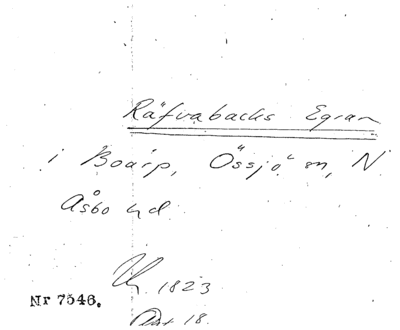 Räfvabacks Egran
i Boarp, Össjö sn, N.
Åsbo hd.
1823
Nr 7546.
18.